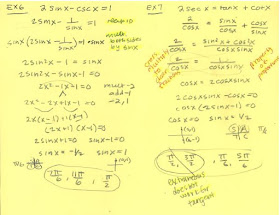 EX6 2sinx - cscx = 1
2sinx - 1/sinx = 1
sinx(2sinx - 1/sinx) = 1·sinx
mult both sides by sinx
2sin²x - 1 = sinx
2sin²x - sinx - 1 = 0
2x² - 1x - 1 = 0
mult -2
add -1
-2, 1
2x² - 2x + 1x - 1 = 0
2x(x-1) + 1(x-1)
(2x+1)(x-1) = 0
2sinx + 1 = 0 sinx - 1 = 0
sinx = -1/2 sinx = 1
7π/6, 11π/6, π/2
EX7 2secx = tanx + cotx
2/cosx = sinx/cosx + cosx/sinx
2/cosx = sin²x + cos²x / cosx sinx
2/cosx = 1 / cosx sinx
cosx = 2cosx sinx
2cosx sinx - cosx = 0
cosx(2sinx - 1) = 0
cosx = 0 sinx = 1/2
π/2, 3π/2, π/6, 5π/6
extraneous
doesn't
work for
tangent